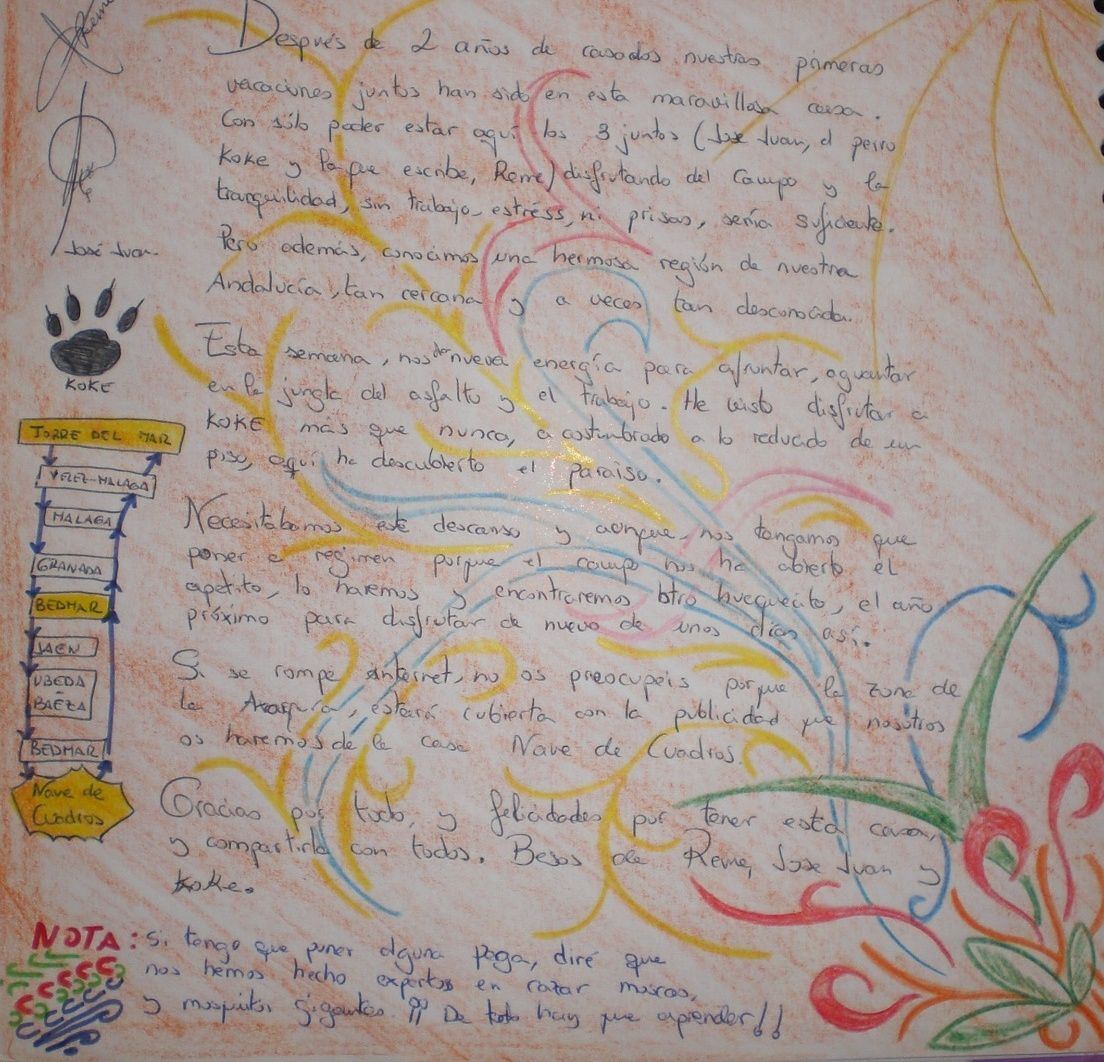 Reme
José Juan
KOKE
TORRE DEL MAR
VELEZ-MALAGA
MALAGA
GRANADA
BEDMAR
JAEN
UBEDA
-
BAEZA
BEDMAR
Nave de
Cuadros
Después de 2 años de casados nuestras primeras
vacaciones juntos han sido en esta maravillosa casa.
Con sólo poder estar aquí los 3 juntos (Jose Juan, el perro
Koke y la que escribe, Reme) disfrutando del Campo y la
tranquilidad, sin trabajo, estréss, ni prisas, sería suficiente.
Pero además, conocimos una hermosa región de nuestra
Andalucía, tan cercana y a veces tan desconocida.
Esta semana, nos da nueva energía para afrontar, aguantar
en la jungla del asfalto y el trabajo. He visto disfrutar a
KOKE más que nunca, acostumbrado a lo reducido de un
piso, aquí ha descubierto el paraiso.
Necesitabamos este descanso y aunque nos tengamos que
poner a regimen porque el campo nos ha abierto el
apetito, lo haremos y encontraremos otro huequecito, el año
próximo para disfrutar de nuevo de unos días así.
Si se rompe internet, no os preocupeis porque la zona de
la Axarquía, estará cubierta con la publicidad que nosotros
os haremos de la casa Nave de Cuadros.
Gracias por todo, y felicidades por tener esta casa,
y compartirla con todos. Besos de Reme, Jose Juan y
Koke.
NOTA: Si tengo que poner alguna pega, diré que
nos hemos hecho expertos en cazar moscas,
y mosquitos gigantes. ¡¡ De todo hay que aprender!!